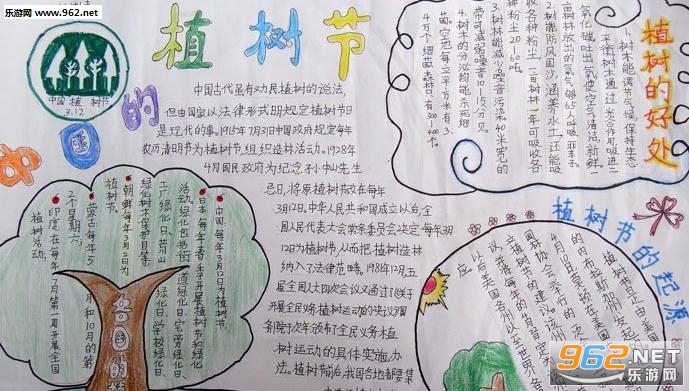 乐游网 www.962.net
中国 植树 节
3.12
植树节
中国的
中国古代虽有劝民植树的说法,
但由国家以法律形式明规定植树节日
是现代的事。1915年7月31日中国政府规定每年
农历清明节为植树节,组织造林活动。1928年
4月国民政府为纪念孙中山先生
忌日,将原植树节改在每年
3月12日。中华人民共和国成立以后全
国人民代表大会常务委员会决定每年3月
12日为植树节,从而把植树造林
纳入了法律范畴。1981年12月五
届全国人大四次会议又通过了《关于
开展全民义务植树运动的决议》国
务院于次年颁布了全民义务植
树运动的具体实施办
法。植树节前后,我国各地都要集
植树的好处
1、树木能调节气候,保持生态
平衡。树木通过光合作用,吸进二
氧化碳,吐出氧气,使空气清洁、新鲜。
一亩树林放出的氧气够65人呼吸一辈子。
2、树能防风固沙,涵养水土,还能吸
收各种粉尘。一亩树林一年可吸收各
种粉尘20-60吨。
3、树林能减少噪音污染。40米宽的
带可减弱噪音10-15分贝。
4、树木的分泌物能杀死细
菌。空地每立方米有3、
4万个细菌,森林只有300-
400个。
植树节的起源
中国:每年3月12日为植树节。
日本:每年春季开展植树节和绿化
活动,绿化包括街道绿化日、宅旁绿化日、
工厂绿化日、荒山绿化日、学校绿化日、
绿化树木保育日等。
朝鲜:每年3月2日为
植树节。
蒙古:每年5月和10月的第
2个星期六。
印度:在每年7月第一周开展全国
植树活动。
各国的植
962.NET
乐游网